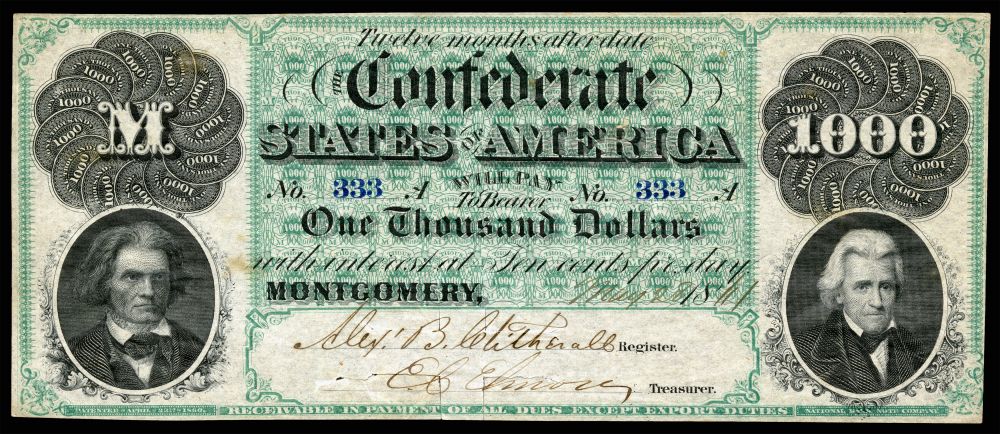 Twelve months after date
THE Confederate
STATES OF AMERICA
M
1000
No. 333 A WILL PAY No. 333 A
To Bearer
One Thousand Dollars
with interest at Ten cents per day
MONTGOMERY, May 28 1861
Alex' B. Clitherall Register.
E C Elmore Treasurer.
PATENTED APRIL 28TH 1860.
RECEIVABLE IN PAYMENT OF ALL DUES EXCEPT EXPORT DUTIES
NATIONAL BANK NOTE COMPANY